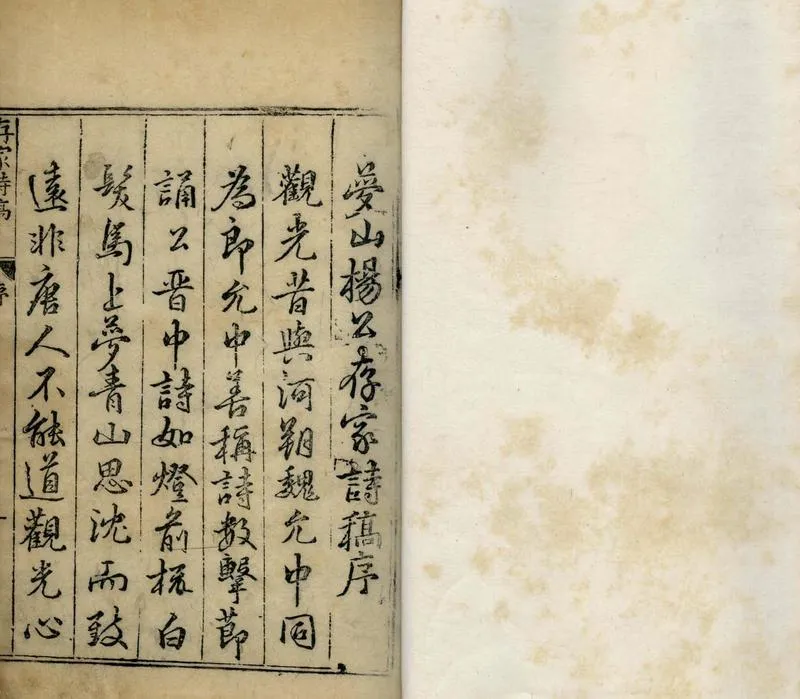 夢山楊公存家詩稿序
觀光昔與河朔魏允中同
為郎允中善稱詩數擊節
誦公晉中詩如燈前梳白
髮馬上夢青山思沈而致
遠非唐人不能道觀光心
存家詩稿
序
一